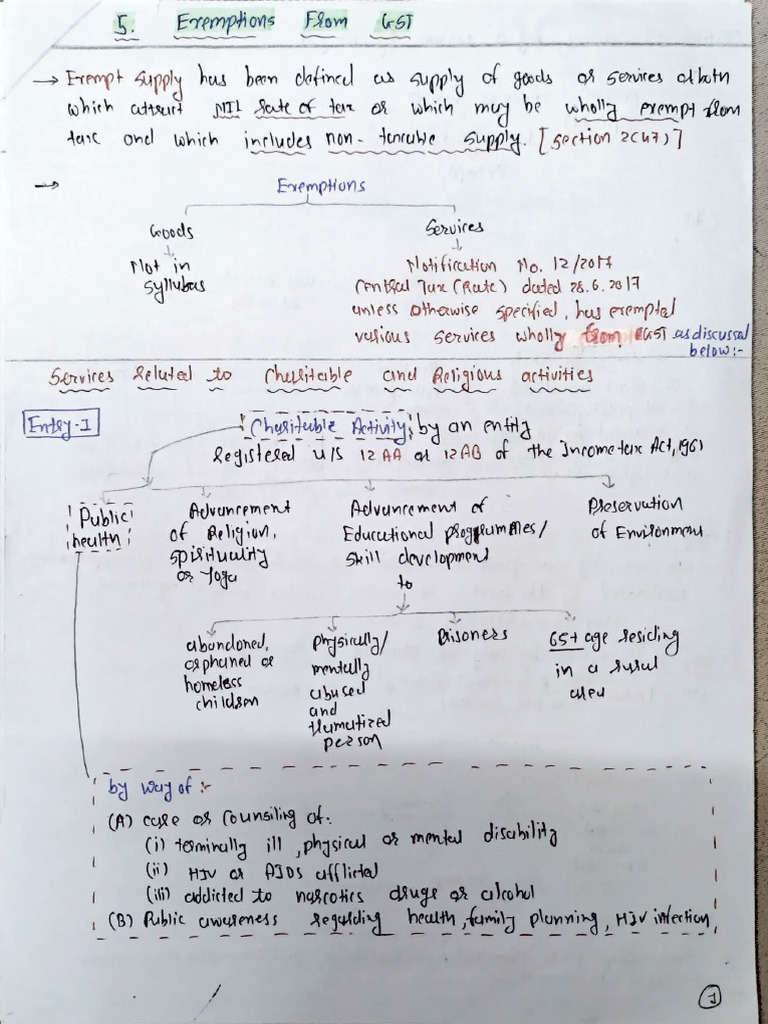 5. Exemptions From GST
→ Exempt supply has been defined as supply of goods or services or both
which attract NIL Rate of tax or which may be wholly exempt from
tax and which includes non-taxable supply. [Section 2(47)]
→ Exemptions
Goods Services
Not in
syllubas
Notification No. 12/2017
Central Tax (Rate) dated 28.6.2017
unless otherwise specified, has exempted
various services wholly from CGST as discussed
below:-
Services Related to Charitable and Religious activities
Entry-1
Charitable Activity by an entity
Registered u/s 12AA or 12AB of the Incometax Act, 1961
Public
health
Advancement
of Religion,
spirituality
or Yoga
Advancement of
Educational programmes/
skill development
to
Preservation
of Environment
abandoned,
orphaned or
homeless
children
physically/
mentally
abused
and
traumatized
person
Prisoners
65+ age residing
in a rural
area
by way of :-
(A) care or counsiling of:
(i) terminally ill, physical or mental disability
(ii) HIV or AIDS afflicted
(iii) addicted to narcotics drugs or alcohol
(B) Public awareness regarding health, family planning, HIV infection
1